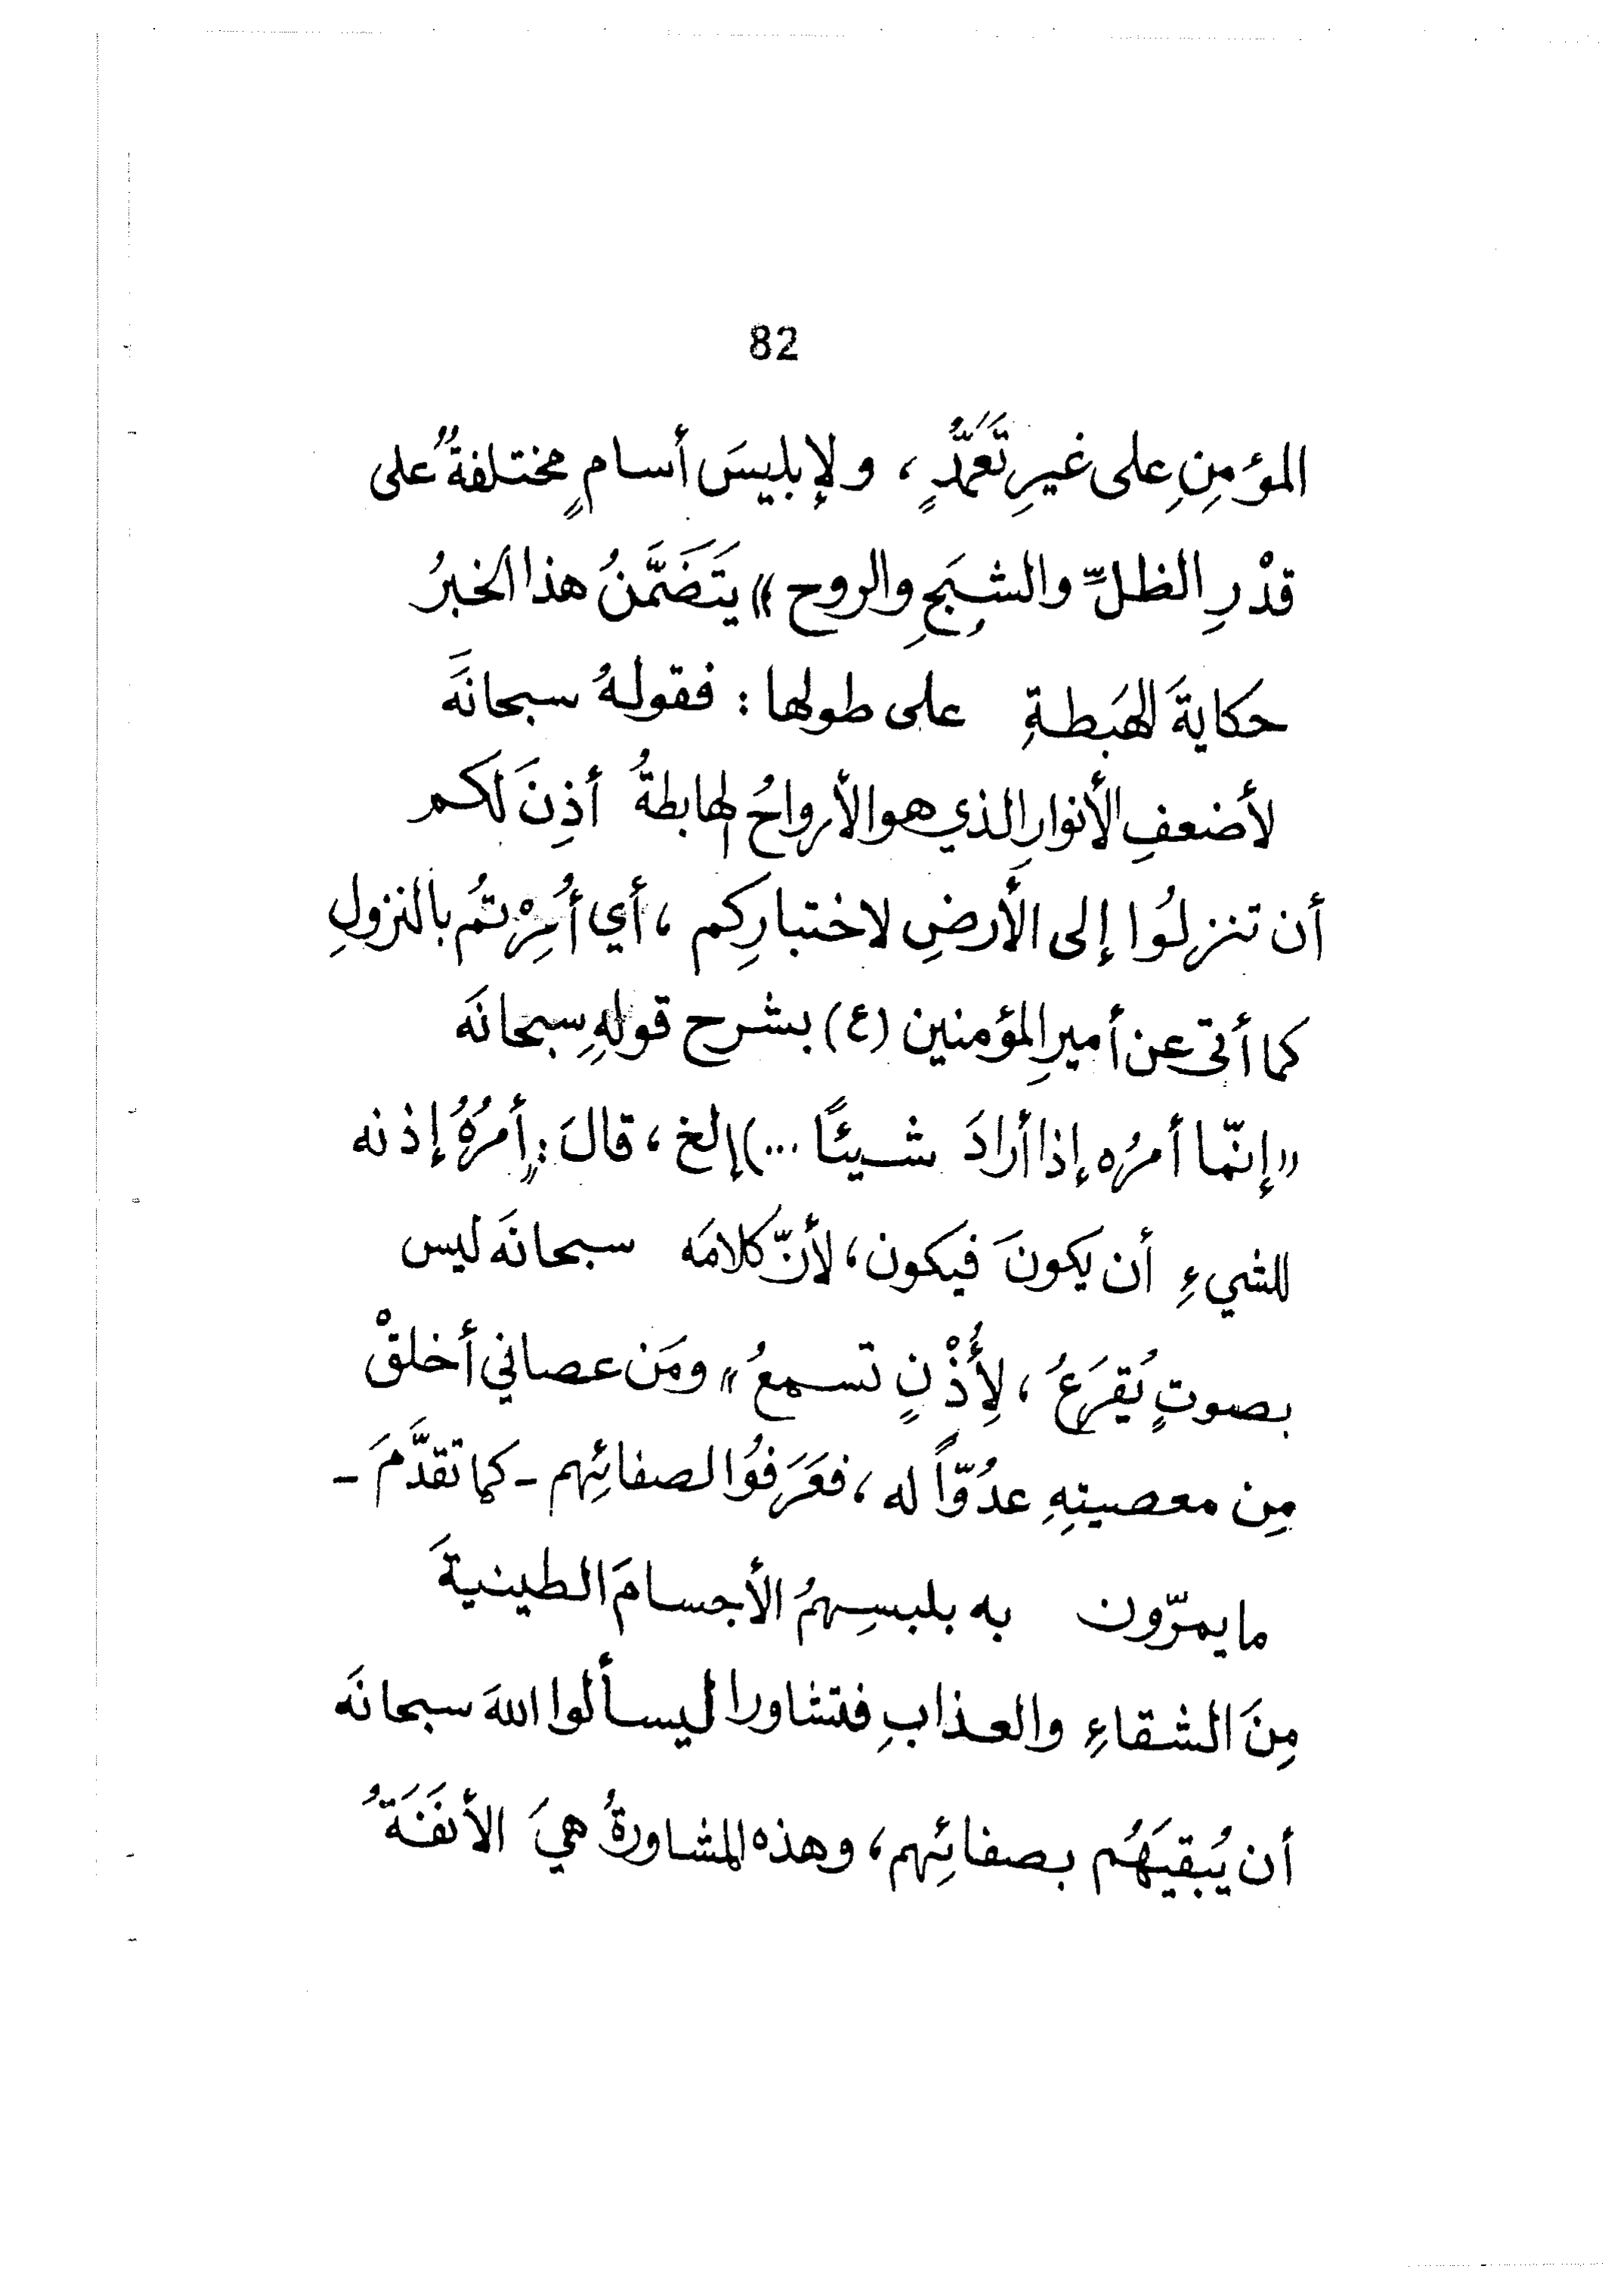 82
المؤمِنِ على غيرِ تَعَمُّدٍ ، ولإبليسَ أسامٍ مختلفةٌ على
قدْرِ الظلِّ والشبَحِ والروح )) يَتَضَمَّنُ هذا الخبرُ
حكايةَ الهَبطةِ على طولها : فقولهُ سبحانَه
لأضعفِ الأنوارِ الذي هو الأرواحُ الهابطةُ أذِنَ لكم
أن تنزلُوا إلى الأرضِ لاختبارِكم ، أي أُمِرْتُم بالنزولِ
كما أتى عن أميرِ المؤمنين (ع) بشرح قولهِ سبحانَه
((إنّما أمرُه إذا أرادَ شيئًا ...)إلخ ، قالَ : ((أمرُهُ إذنه
للشيءِ أن يكونَ فيكون ، لأنّ كلامَه سبحانَه ليس
بصوتٍ يُقرَعُ ، لِأُذْنٍ تسمعُ )) ومَن عصاني أخلقْ
مِن معصيتِهِ عدُوّاً له ، فعَرَفُوا لصفائِهم - كما تقدَّمَ -
ما يمرّون به بلبسِهمُ الأجسامَ الطينيةَ
مِنَ الشقاءِ والعذابِ فتشاورا ليسألوا اللهَ سبحانَه
أن يُبقيَهُم بصفائِهم ، وهذه المشاورةُ هيَ الأنَفَةُ